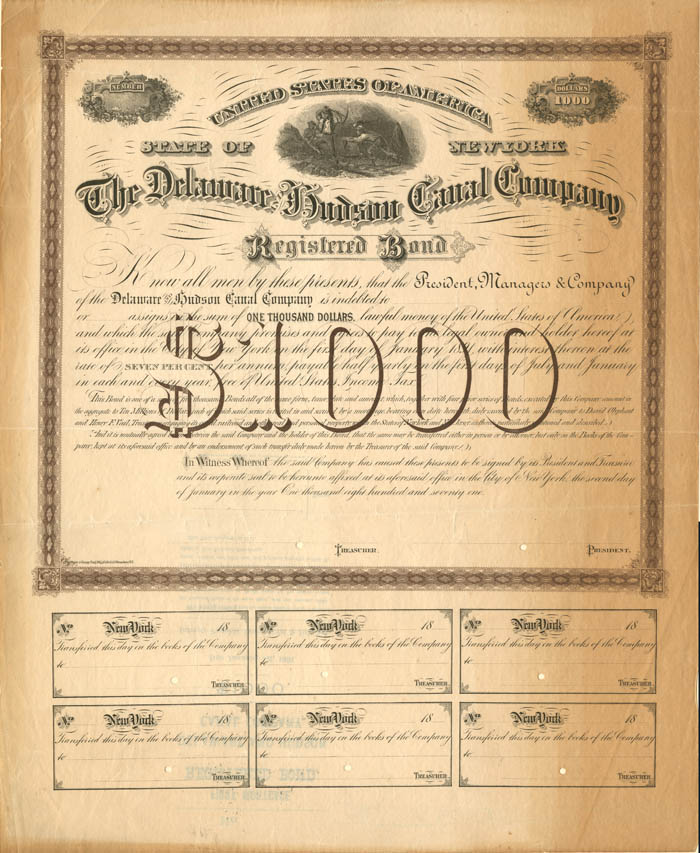 NUMBER
DOLLARS
1000
UNITED STATES OF AMERICA
STATE OF NEW YORK
The Delaware and Hudson Canal Company
Registered Bond
Know all men by these presents, that the President, Managers & Company
of the Delaware and Hudson Canal Company is indebted to
or assigns in the sum of ONE THOUSAND DOLLARS, lawful money of the United States of America;
and which the said Company promises and agrees to pay to the legal owner and holder hereof at
its office in the City of New York on the first day of January 18 with interest thereon at the
rate of SEVEN PER CENT. per annum, payable half yearly on the first days of July and January
in each and every year, free of United States Income Tax.
$1000
This Bond is one of a Thousand Bonds all of the same form, tenor and amount, which, together with four other series of Bonds, executed by this Company amount in
the aggregate to Ten Millions by the said Company to David Olyphant
and
And it is mutually agreed between the said Company and the holder of this Bond, that the same may be transferred either in person or by attorney, but only on the Books of the Com-
pany, kept at its aforesaid office and by an endorsement of such transfer duly made hereon by the Treasurer of the said Company.
In Witness Whereof the said Company has caused these presents to be signed by its President and Treasurer
and its corporate seal to be hereunto affixed at its aforesaid office in the City of New York, the second day
of January in the year One thousand eight hundred and seventy one.
TREASURER. PRESIDENT.
No New York 18
Transferred this day on the books of the Company
to
TREASURER.
No New York 18
Transferred this day on the books of the Company
to
TREASURER.
No New York 18
Transferred this day on the books of the Company
to
TREASURER.
No New York 18
Transferred this day on the books of the Company
to
TREASURER.
No New York 18
Transferred this day on the books of the Company
to
TREASURER.
No New York 18
Transferred this day on the books of the Company
to
TREASURER.